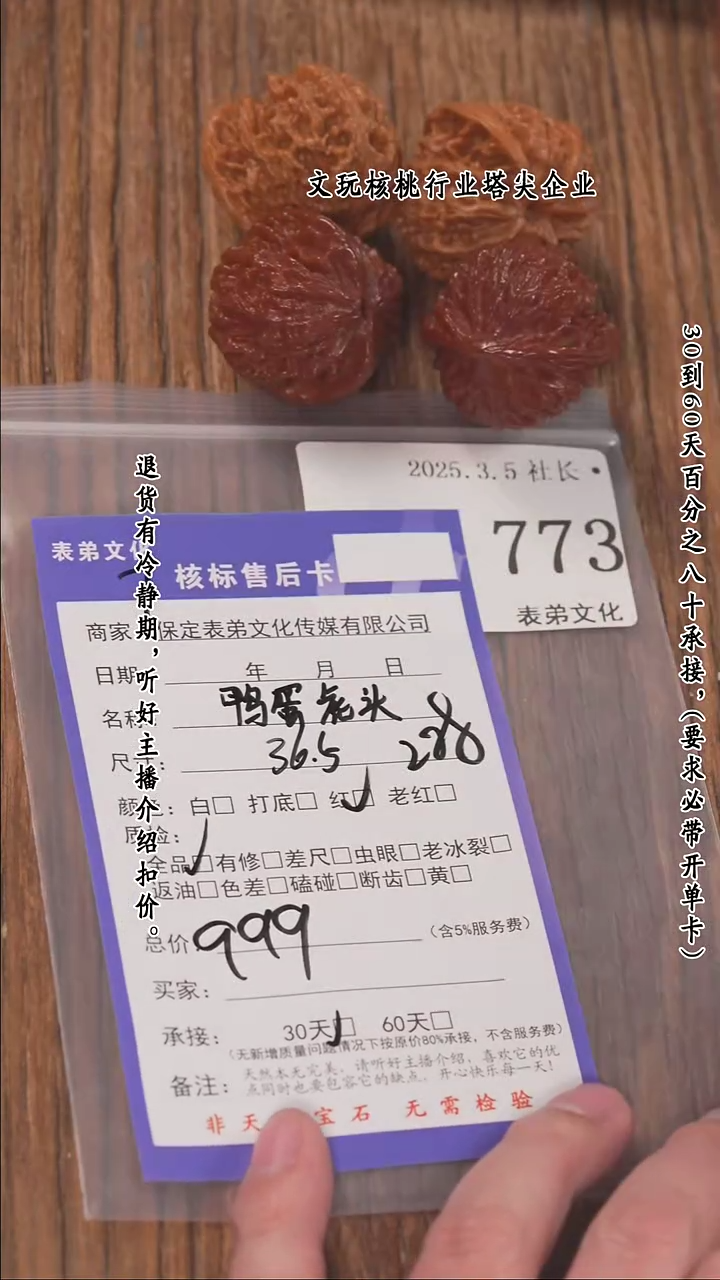 文玩核桃行业塔尖企业
30到60天百分之八十承接,(要求必带开单卡)
退货有冷静期,听好主播介绍扣价。
2025.3.5 社长·
773
表弟文化
表弟文化
核标售后卡
商家 保定表弟文化传媒有限公司
日期 年 月 日
名称: 鸭蛋虎头
尺寸: 36.5 288
颜色: 白□ 打底□ 红☑ 老红□
质检:
全品☑有修□差尺□虫眼□老冰裂□
返油□色差□磕碰□断齿□黄□
总价 999 (含5%服务费)
买家:
承接: 30天☑ 60天□
(无新增质量问题情况下按原价80%承接,不含服务费)
备注: 天然本无完美,请听好主播介绍,喜欢它的优
点同时也要包容它的缺点,开心快乐每一天!
非天 宝石 无需检验